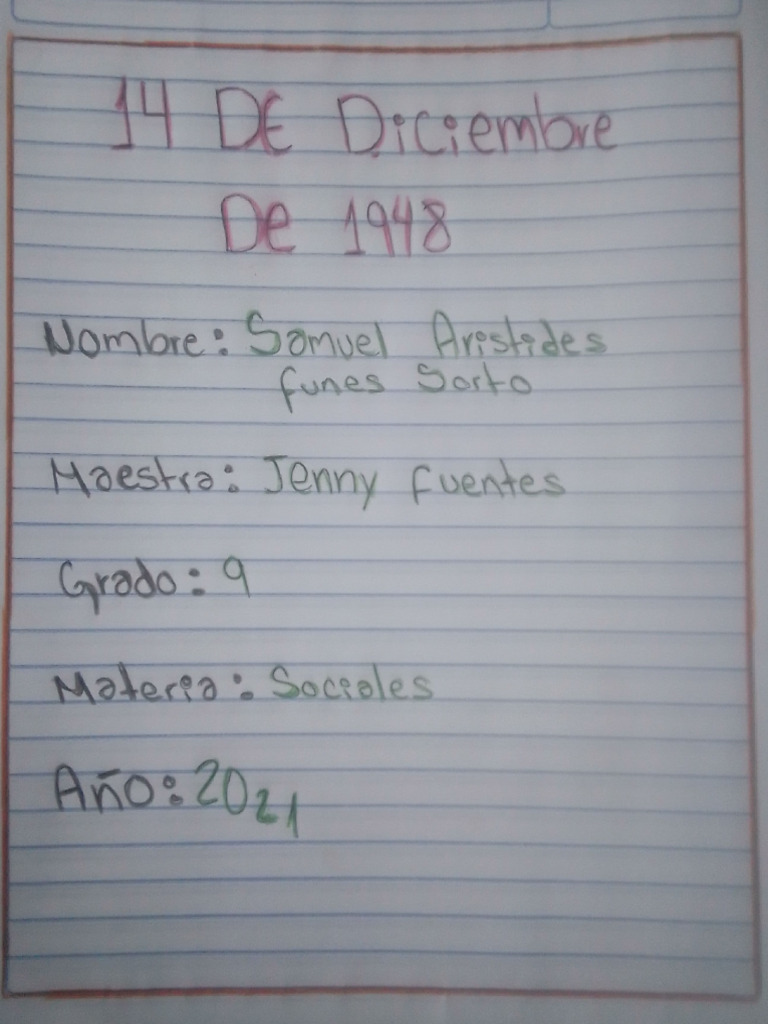 14 DE Diciembre
De 1948
Nombre: Samuel Aristides
funes Sorto
Maestra: Jenny fuentes
Grado: 9
Materia: Sociales
Año: 2021